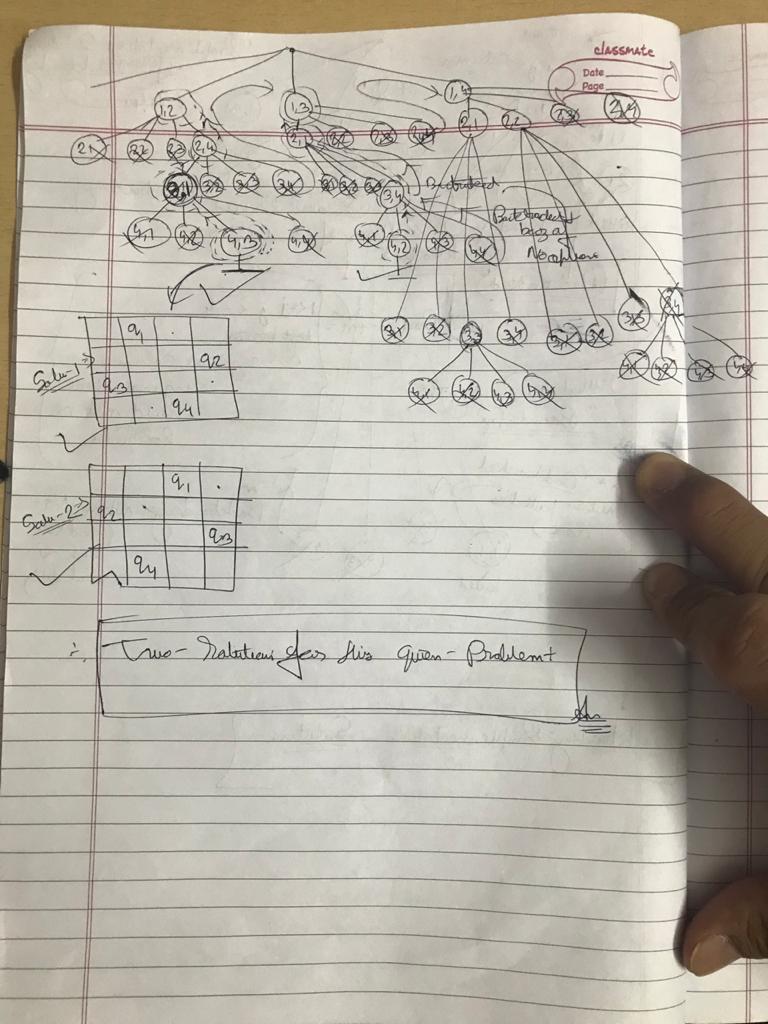 classmate
Date
Page
1,2 1,3 1,4
2,1 2,2 2,3 2,4 2,1 2,2 2,3 2,4 2,1 2,2 2,3 2,4
3,1 3,2 3,3 3,4 3,1 3,2 3,3 3,4 Backtracked
4,1 4,2 4,3 4,4 4,1 4,2 4,3 4,4
Backtracked
coz of
No options
3,1 3,2 3,3 3,4 3,1 3,2 3,3 3,4
4,1 4,2 4,3 4,4 4,1 4,2 4,3 4,4
q1
q2
Solu-1 → q3
q4
q1
Solu-2 → q2
q3
q4
∴ Two-Solutions for this queen-Problem
Ans